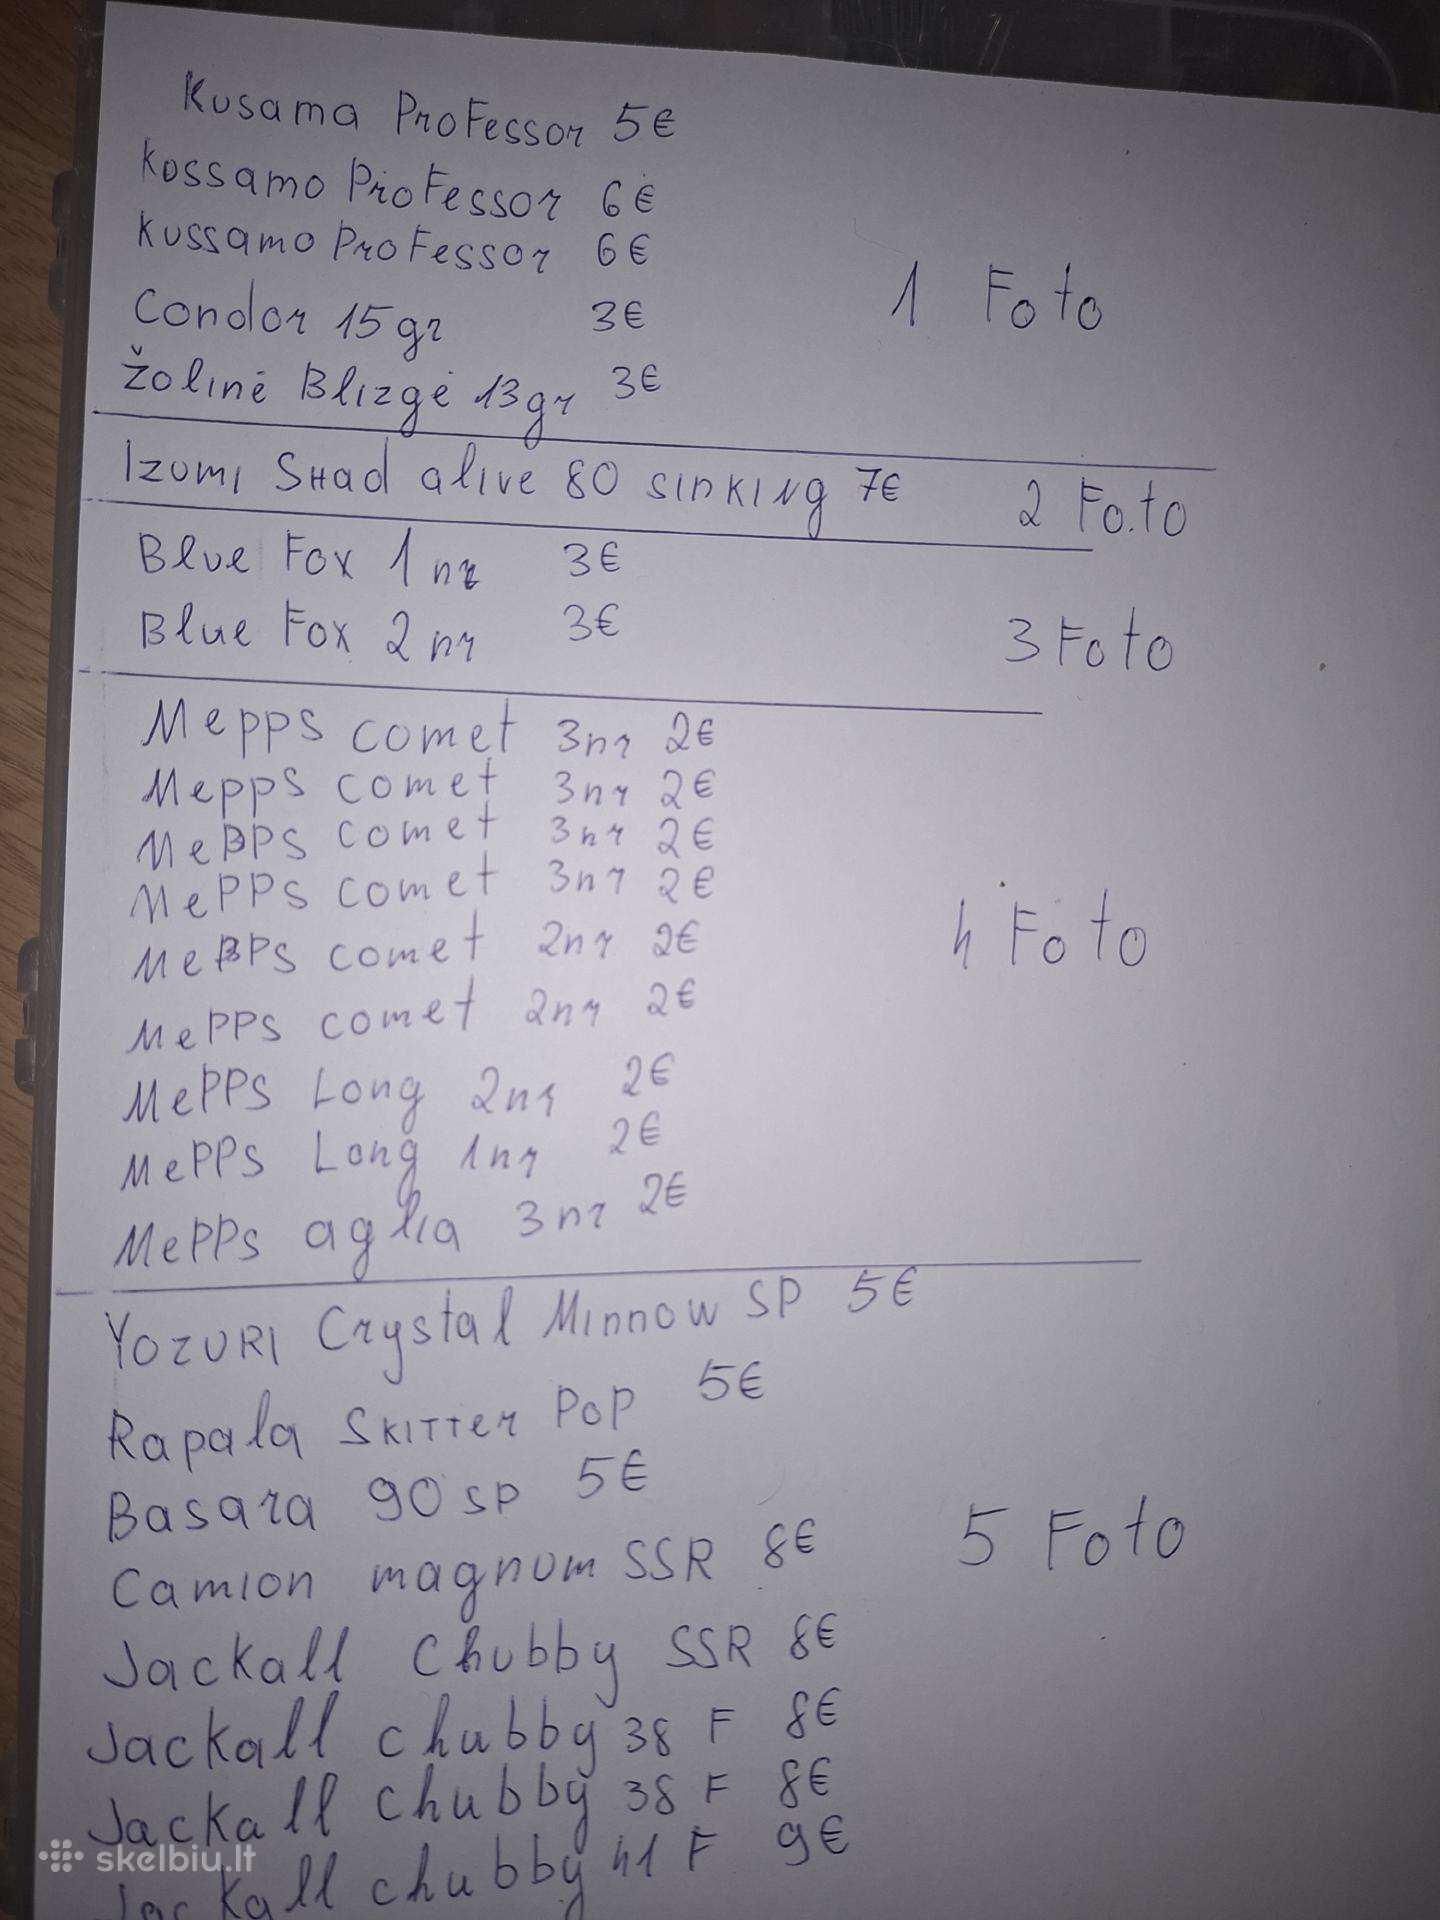 Kusama Professor 5€
Kossamo Professor 6€
Kussamo Professor 6€
Condor 15gr 3€
1 Foto
Žolinė Blizgė 13gr 3€
Izumi Shad alive 80 sinking 7€ 2 Fo.to
Blue Fox 1 nr 3€
Blue Fox 2 nr 3€ 3 Foto
Mepps comet 3nr 2€
Mepps comet 3nr 2€
Mepps comet 3nr 2€
MePPS comet 3nr 2€
MePPS comet 2nr 2€
4 Foto
MePPS comet 2nr 2€
MePPS Long 2nr 2€
MePPS Long 1nr 2€
MePPs aglia 3nr 2€
YOZURI Crystal Minnow SP 5€
Rapala Skitter PoP 5€
Basara 90 SP 5€
5 Foto
Camion magnum SSR 8€
Jackall Chubby SSR 8€
Jackall chubby 38 F 8€
Jackall chubby 38 F 8€
Jackall chubby 41 F 9€
skelbiu.lt